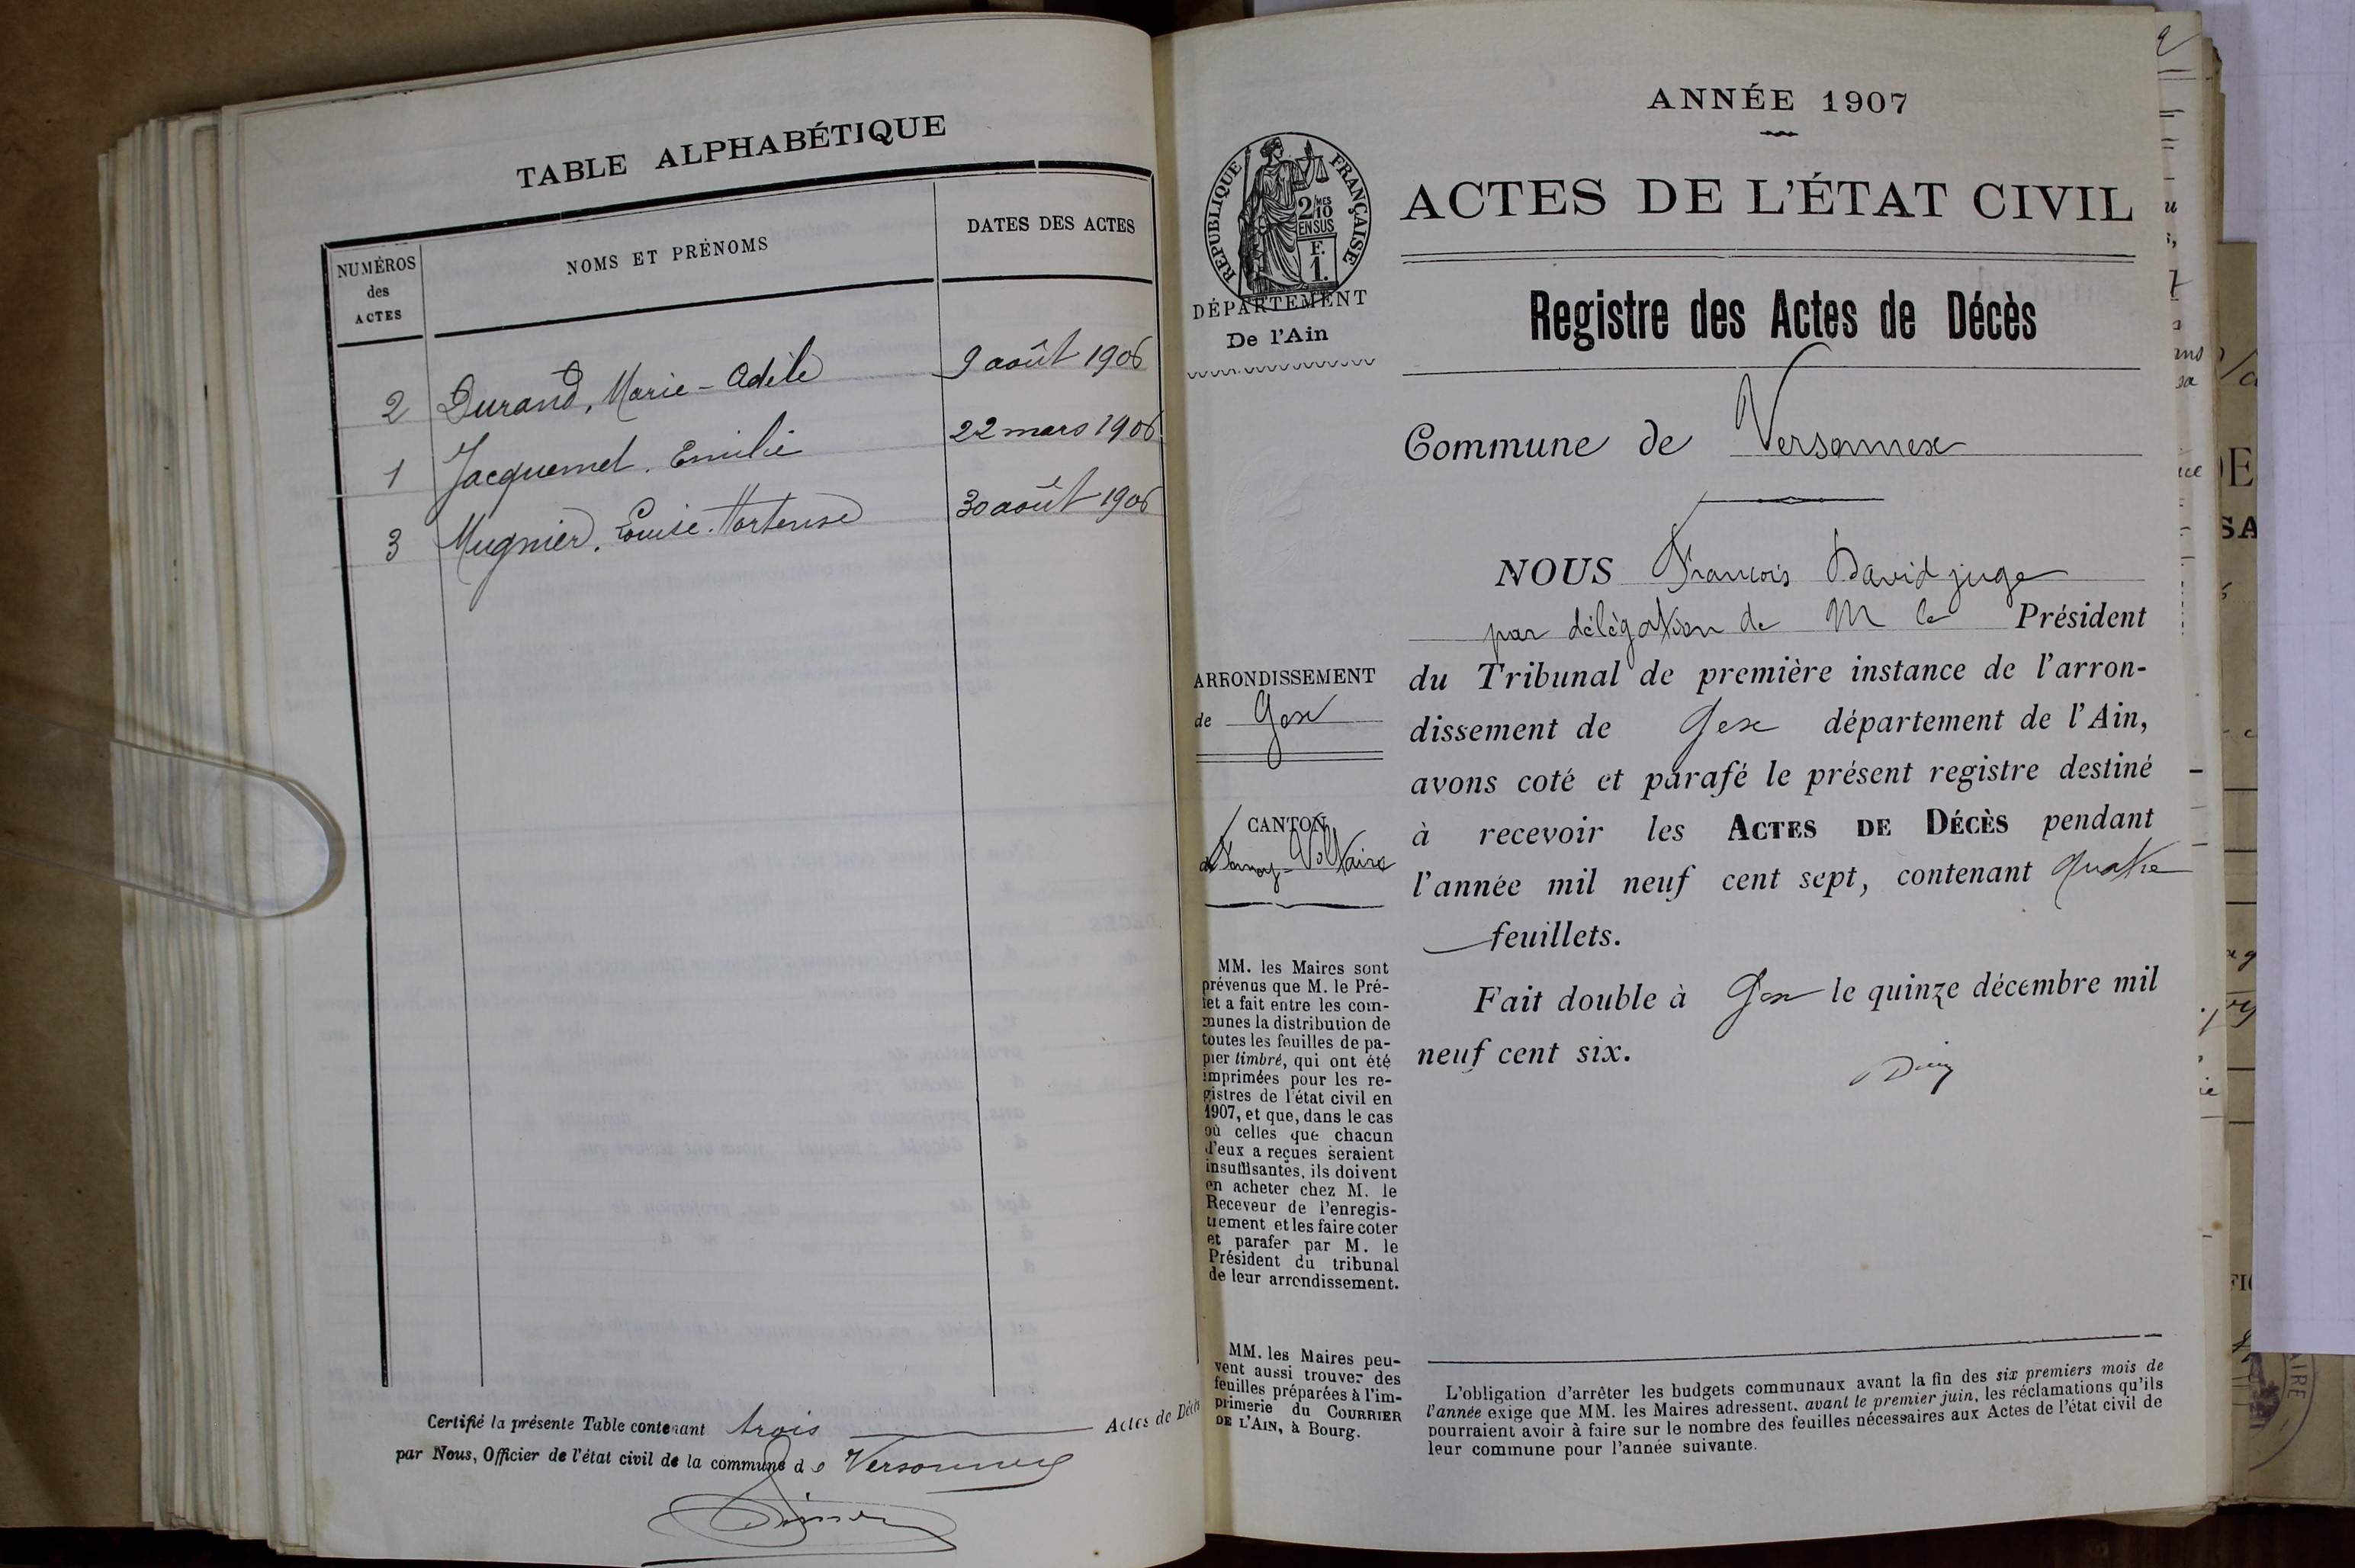 TABLE ALPHABÉTIQUE
NUMÉROS
des
ACTES
NOMS ET PRÉNOMS
DATES DES ACTES
2 Durand, Marie-Adèle 9 août 1906
1 Jacquemet. Emilie 22 mars 1906
3 Mugnier, Louise-Hortense 30 août 1906
Certifié la présente Table contenant trois Actes de Décès
par Nous, Officier de l'état civil de la commune de Versonnex
ANNÉE 1907
RÉPUBLIQUE FRANÇAISE
2/10 MES
EN SUS
F.
1.
ACTES DE L'ÉTAT CIVIL
DÉPARTEMENT
De l'Ain
Registre des Actes de Décès
Commune de Versonnex
NOUS François David juge
par délégation de M le Président
du Tribunal de première instance de l'arron-
dissement de Gex département de l'Ain,
avons coté et parafé le présent registre destiné
à recevoir les ACTES DE DÉCÈS pendant
l'année mil neuf cent sept, contenant quatre
feuillets.
Fait double à Gex le quinze décembre mil
neuf cent six.
ARRONDISSEMENT
de Gex
CANTON
de Ferney-Voltaire
MM. les Maires sont
prévenus que M. le Pré-
fet a fait entre les com-
munes la distribution de
toutes les feuilles de pa-
pier timbré, qui ont été
imprimées pour les re-
gistres de l'état civil en
1907, et que, dans le cas
où celles que chacun
d'eux a reçues seraient
insuffisantes, ils doivent
en acheter chez M. le
Receveur de l'enregis-
trement et les faire coter
et parafer par M. le
Président du tribunal
de leur arrondissement.
MM. les Maires peu-
vent aussi trouver des
feuilles préparées à l'im-
primerie du COURRIER
DE L'AIN, à Bourg.
L'obligation d'arrêter les budgets communaux avant la fin des six premiers mois de
l'année exige que MM. les Maires adressent, avant le premier juin, les réclamations qu'ils
pourraient avoir à faire sur le nombre des feuilles nécessaires aux Actes de l'état civil de
leur commune pour l'année suivante.